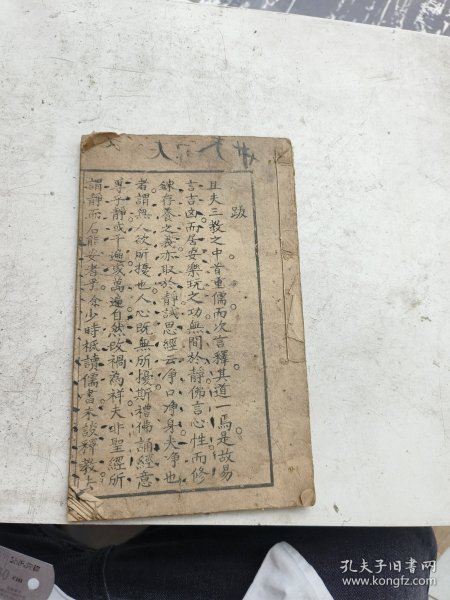 跋
且夫三教之中首重儒而次言釋其道一焉是故易
言吉凶而居安樂玩之功無間於靜佛言心性而修
鍊存養之義亦取於靜誠思經云净口净身夫净也
者謂無人欲所擾也人心既無所擾斯禮佛誦經意
專乎靜或千遍或萬遍自然改禍為祥夫非聖經所
謂靜而后能安者乎余少時祗讀儒書未談釋教
孔夫子旧书网
www.kongfz.com